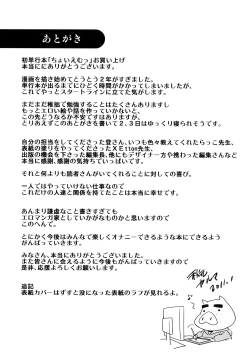 あとがき
初単行本「ちょいえむっ」お買い上げ
本当にありがとうございます。
漫画を描き始めてとうとう2年がすぎました。
単行本が出るまでにひどく時間がかかってしまいましたが、
これでやっとスタートラインに立てた気がします。
まだまだ稚拙で勉強することはたくさんありますし
もっとエロい絵や話を作っていかないと、
この先どうなるか不安ではありますが、
とりあえずこのあとがきを書いて2、3日はゆっくり寝られそうです。
自分の担当をしてくださった登さん、いつも色々教えてくれたらっこ先生、
表紙の塗りをやってくださったXEtton先生、
出版の機会を下さった編集長、他にもデザイナー方や携わった編集さんなど
本当に感謝、感謝の気持ちでいっぱいです。
それと何よりも読者さんがいてくれることに対しての喜び。
一人ではやっていけない仕事なので
これだけの人達と関係を持てたことは本当に幸せです。
あんまり謙虚なこと書きすぎても
エロマンガ家としていかがなものかと思いますので
このへんで。
とにかく今後はみんなで楽しくオナニーできるような本にできるよう
がんばっていきます。
みなさん、本当にありがとうございました。
また皆さんに会えるように今後もがんばっていきますので
是非、応援よろしくお願いします。
追記
表紙カバーはずすと没になった表紙のラフが見れるよ。
2011.1